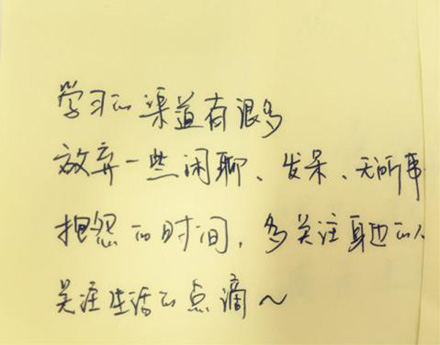 学习的渠道有很多
放弃一些闲聊、发呆、无所事
抱怨的时间,多关注身边的人
关注生活的点滴~